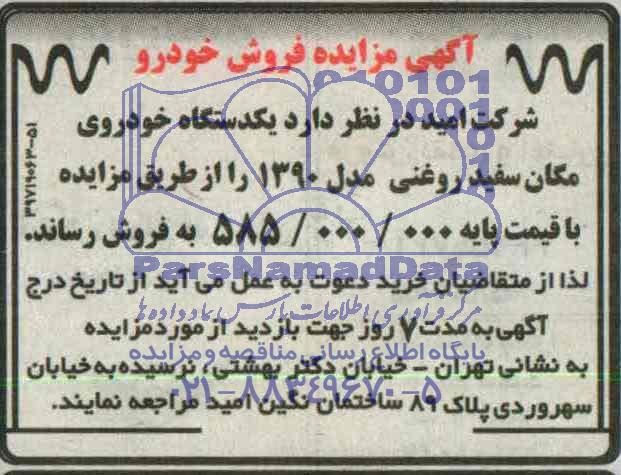 آگهی مزایده فروش خودرو
شرکت امید در نظر دارد یکدستگاه خودروی
مگان سفید روغنی مدل ۱۳۹۰ را از طریق مزایده
با قیمت پایه ۵۸۵/۰۰۰/۰۰۰ به فروش رساند.
لذا از متقاضیان خرید دعوت به عمل می آید از تاریخ درج
آگهی به مدت ۷ روز جهت بازدید از مورد مزایده
به نشانی تهران - خیابان دکتر بهشتی، نرسیده به خیابان
سهروردی پلاک ۸۹ ساختمان نگین امید مراجعه نمایند.
۳۹۷۱۹۰۶۳-۵۱
ParsNamadData
مرکز فرآوری اطلاعات پارس نماد داده ها
پایگاه اطلاع رسانی مناقصه و مزایده
۰۲۱-۸۸۳۴۹۶۷۰-۵